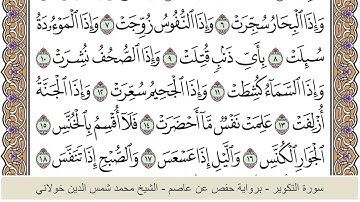 وَإِذَا ٱلْبِحَارُ سُجِّرَتْ ٦ وَإِذَا ٱلنُّفُوسُ زُوِّجَتْ ٧ وَإِذَا ٱلْمَوْءُۥدَةُ
سُئِلَتْ ٨ بِأَىِّ ذَنۢبٍ قُتِلَتْ ٩ وَإِذَا ٱلصُّحُفُ نُشِرَتْ ١٠
وَإِذَا ٱلسَّمَآءُ كُشِطَتْ ١١ وَإِذَا ٱلْجَحِيمُ سُعِّرَتْ ١٢ وَإِذَا ٱلْجَنَّةُ
أُزْلِفَتْ ١٣ عَلِمَتْ نَفْسٌ مَّآ أَحْضَرَتْ ١٤ فَلَآ أُقْسِمُ بِٱلْخُنَّسِ ١٥
ٱلْجَوَارِ ٱلْكُنَّسِ ١٦ وَٱلَّيْلِ إِذَا عَسْعَسَ ١٧ وَٱلصُّبْحِ إِذَا تَنَفَّسَ ١٨
سورة التكوير - برواية حفص عن عاصم - الشيخ محمد شمس الدين خولاني